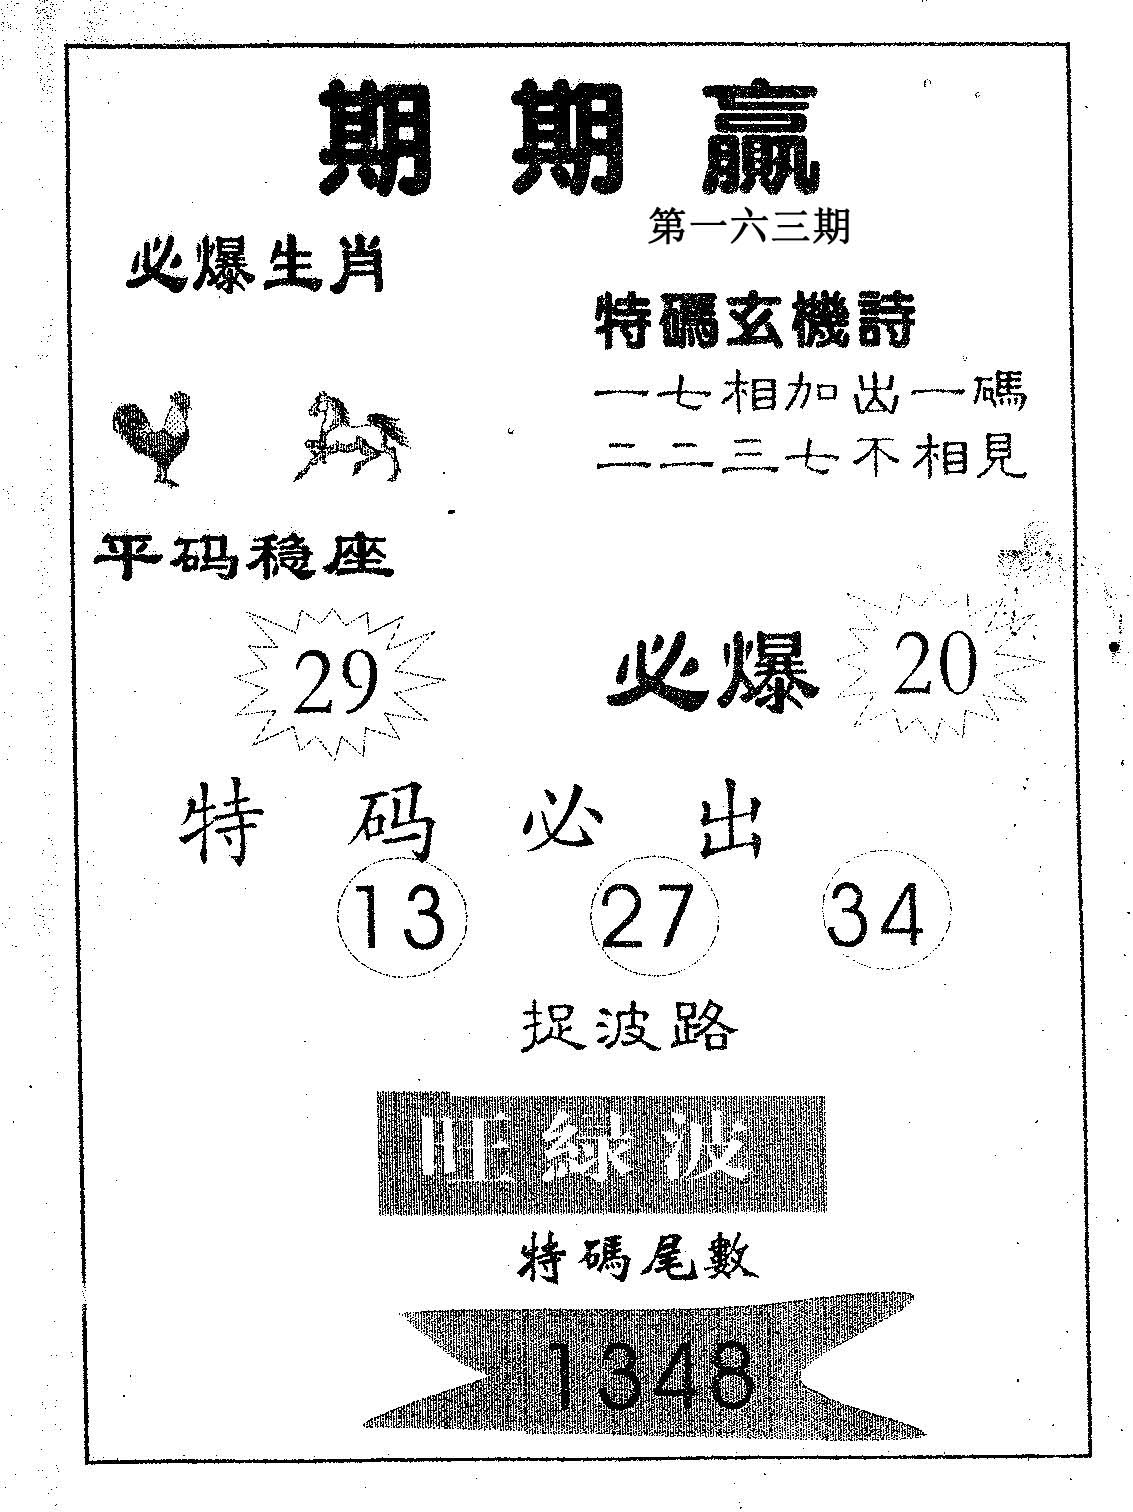 期期赢
第一六三期
必爆生肖
特碼玄機詩
一七相加出一碼
二二三七不相見
平码稳座
29
必爆 20
特码必出
13 27 34
捉波路
旺綠波
特碼尾數
1348